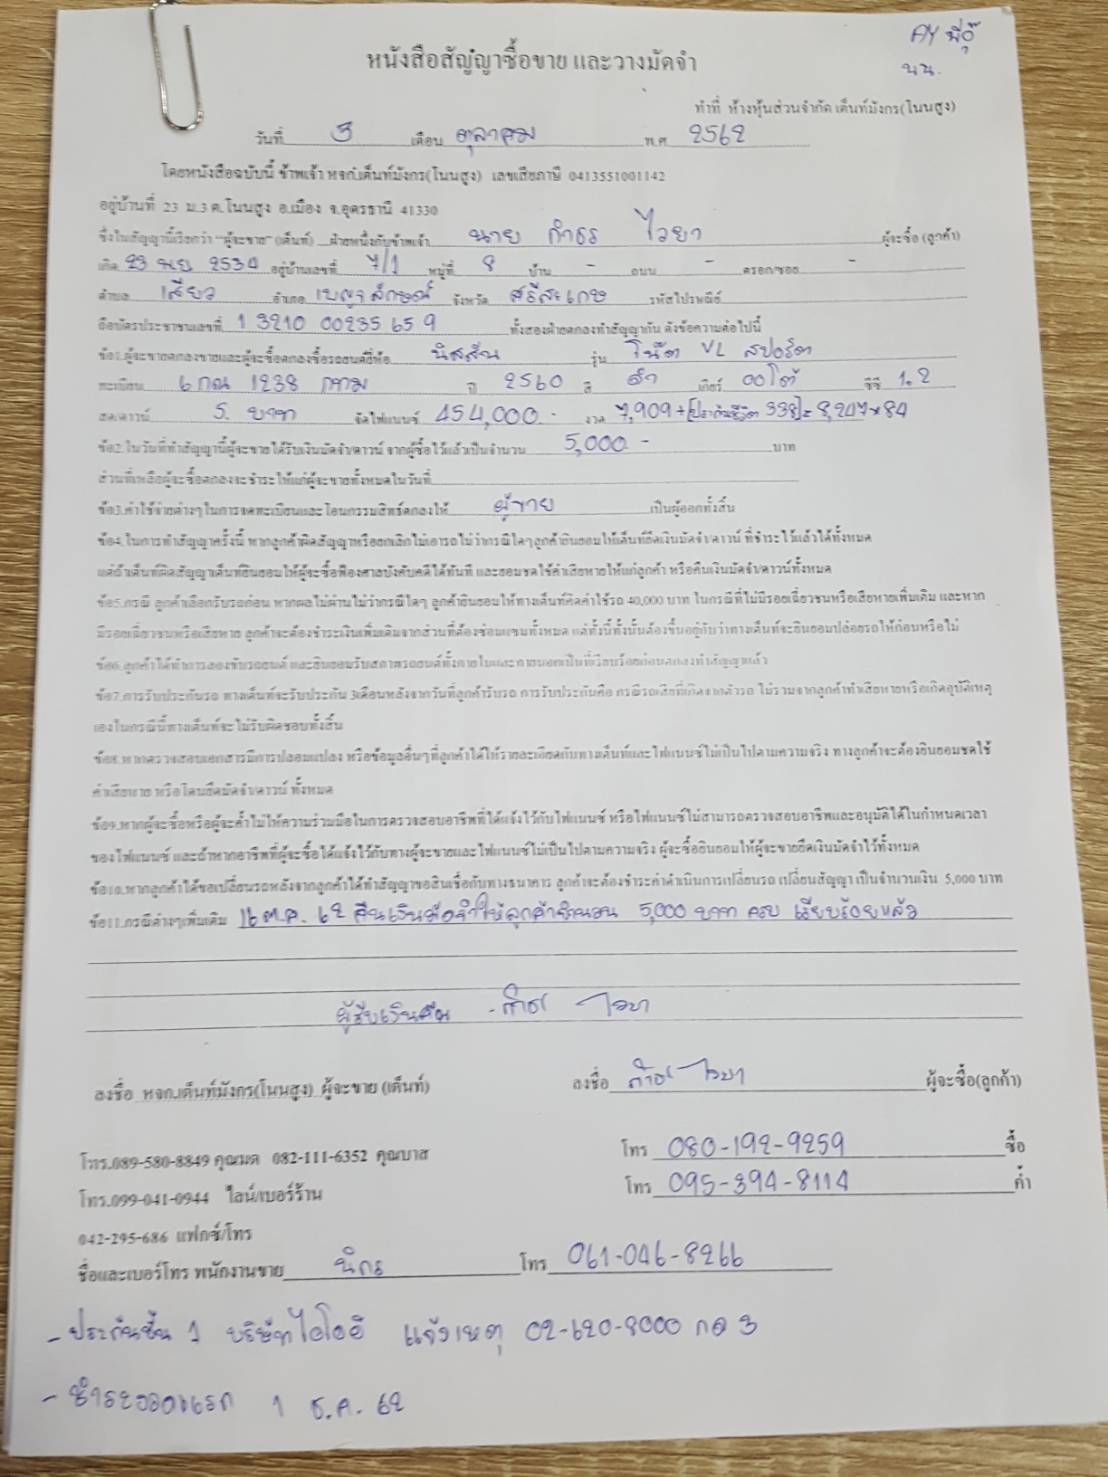 AY พี่อุ๊
นน.
หนังสือสัญญาซื้อขาย และวางมัดจำ
ทำที่ ห้างหุ้นส่วนจำกัด เต็นท์มังกร(โนนสูง)
วันที่ 3 เดือน ตุลาคม พ.ศ 2562
โดยหนังสือฉบับนี้ ข้าพเจ้า หจก.เต็นท์มังกร(โนนสูง) เลขเสียภาษี 0413551001142
อยู่บ้านที่ 23 ม.3 ต.โนนสูง อ.เมือง จ.อุดรธานี 41330
ซึ่งในสัญญานี้เรียกว่า "ผู้จะขาย" (เต็นท์) ฝ่ายหนึ่งกับข้าพเจ้า นาย กำธร ไวยา ผู้จะซื้อ (ลูกค้า)
เกิด 23 พย 2534 อยู่บ้านเลขที่ 7/1 หมู่ที่ 8 บ้าน - ถนน - ตรอก/ซอย -
ตำบล เสียว อำเภอ เบญจลักษณ์ จังหวัด ศรีสะเกษ รหัสไปรษณีย์
ถือบัตรประชาชนเลขที่ 1 3210 00235 65 9 ทั้งสองฝ่ายตกลงทำสัญญากัน ดังข้อความต่อไปนี้
ข้อ1.ผู้จะขายตกลงขายและผู้จะซื้อตกลงซื้อรถยนต์ยี่ห้อ นิสสัน รุ่น โน๊ต VL สปอร์ต
ทะเบียน 6 กณ 1238 กทม ปี 2560 สี ดำ เกียร์ ออโต้ ซีซี 1.2
ยอดดาวน์ 5. บาท จัดไฟแนนซ์ 454,000.- งวด 7,909+[ประกันชีวิต 338]= 8,247×84
ข้อ2.ในวันที่ทำสัญญานี้ผู้จะขายได้รับเงินมัดจำ/ดาวน์ จากผู้ซื้อไว้แล้วเป็นจำนวน 5,000 - บาท
ส่วนที่เหลือผู้จะซื้อตกลงจะชำระให้แก่ผู้จะขายทั้งหมดในวันที่
ข้อ3.ค่าใช้จ่ายต่างๆในการจดทะเบียนและโอนกรรมสิทธ์ตกลงให้ ผู้ขาย เป็นผู้ออกทั้งสิ้น
ข้อ4.ในการทำสัญญาครั้งนี้ หากลูกค้าผิดสัญญาหรือยกเลิกไม่เอารถไม่ว่ากรณีใดๆลูกค้ายินยอมให้เต็นท์ยึดเงินมัดจำ/ดาวน์ ที่ชำระไว้แล้วได้ทั้งหมด
แต่ถ้าเต็นท์ผิดสัญญาเต็นท์ยินยอมให้ผู้จะซื้อฟ้องศาลบังคับคดีได้ทันที และยอมชดใช้ค่าเสียหายให้แก่ลูกค้า หรือคืนเงินมัดจำ/ดาวน์ทั้งหมด
ข้อ5.กรณี ลูกค้าเลือกรับรถก่อน หากผลไม่ผ่านไม่ว่ากรณีใดๆ ลูกค้ายินยอมให้ทางเต็นท์คิดค่าใช้รถ 40,000 บาท ในกรณีที่ไม่มีรอยเฉี่ยวชนหรือเสียหายเพิ่มเติม และหาก
มีรอยเฉี่ยวชนหรือเสียหาย ลูกค้าจะต้องชำระเงินเพิ่มเติมจากส่วนที่ต้องซ่อมแซมทั้งหมด แต่ทั้งนี้ทั้งนั้นต้องขึ้นอยู่กับว่าทางเต็นท์จะยินยอมปล่อยรถให้ก่อนหรือไม่
ข้อ6.ลูกค้าได้ทำการลองขับรถยนต์ และยินยอมรับสภาพรถยนต์ทั้งภายในและภายนอกเป็นที่เรียบร้อยก่อนตกลงทำสัญญาแล้ว
ข้อ7.การรับประกันรถ ทางเต็นท์จะรับประกัน 3เดือนหลังจากวันที่ลูกค้ารับรถ การรับประกันคือ กรณีรถเสียที่เกิดจากตัวรถ ไม่รวมจากลูกค้าทำเสียหายหรือเกิดอุบัติเหตุ
เองในกรณีนี้ทางเต็นท์จะไม่รับผิดชอบทั้งสิ้น
ข้อ8.หากตรวจสอบเอกสารมีการปลอมแปลง หรือข้อมูลอื่นๆที่ลูกค้าได้ให้รายละเอียดกับทางเต็นท์และไฟแนนซ์ไม่เป็นไปตามความจริง ทางลูกค้าจะต้องยินยอมชดใช้
ค่าเสียหาย หรือโดนยึดมัดจำ/ดาวน์ ทั้งหมด
ข้อ9.หากผู้จะซื้อหรือผู้จะค้ำไม่ให้ความร่วมมือในการตรวจสอบอาชีพที่ได้แจ้งไว้กับไฟแนนซ์ หรือไฟแนนซ์ไม่สามารถตรวจสอบอาชีพและอนุมัติได้ในกำหนดเวลา
ของไฟแนนซ์ และถ้าหากอาชีพที่ผู้จะซื้อได้แจ้งไว้กับทางผู้จะขายและไฟแนนซ์ไม่เป็นไปตามความจริง ผู้จะซื้อยินยอมให้ผู้จะขายยึดเงินมัดจำไว้ทั้งหมด
ข้อ10.หากลูกค้าได้ขอเปลี่ยนรถหลังจากลูกค้าได้ทำสัญญาขอสินเชื่อกับทางธนาคาร ลูกค้าจะต้องชำระค่าดำเนินการเปลี่ยนรถ เปลี่ยนสัญญา เป็นจำนวนเงิน 5,000 บาท
ข้อ11.กรณีต่างๆเพิ่มเติม 16 ต.ค. 62 คืนเงินมัดจำให้ลูกค้าจำนวน 5,000 บาท ครบ เรียบร้อยแล้ว
ผู้รับเงินคืน - กำธร ไวยา
ลงชื่อ หจก.เต็นท์มังกร(โนนสูง) ผู้จะขาย (เต็นท์) ลงชื่อ กำธร ไวยา ผู้จะซื้อ(ลูกค้า)
โทร.089-580-8849 คุณมด 082-111-6352 คุณบาส โทร 080-192-9259 ซื้อ
โทร.099-041-0944 ไลน์/เบอร์ร้าน โทร 095-394-8114 ค้ำ
042-295-686 แฟกซ์/โทร
ชื่อและเบอร์โทร พนักงานขาย นิกร โทร 061-046-8266
- ประกันชั้น 1 บริษัทไอโออิ แจ้งเหตุ 02-620-8000 กด 3
- ชำระงวดแรก 1 ธ.ค. 62